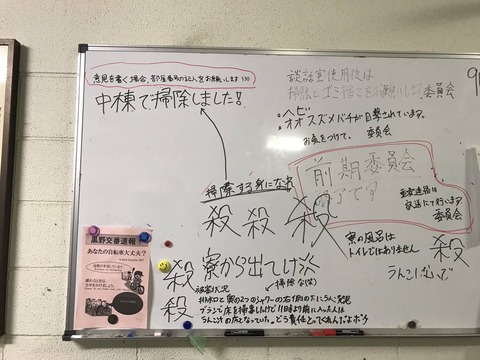 意見を書く場合、部屋番号の記入をお願いします
中棟で掃除しました!
談話室使用後は
掃除とゴミ捨てをお願いします 委員会
・ヘビ
・オオスズメバチが目撃されています。
お気をつけて。 委員会
掃除する身になれ
殺 殺 殺
前期委員会
終了です
重要連絡は
放送にて行います
委員会
寮の風呂は
トイレではありません
殺
うんこ
殺 寮から出てけ
掃除
殺
被害状況
排水口と奥の2つのシャワーの右側の下にうんこ発見
ブラシで床を掃除したけど11時より前に入った人は
うんこ汁の床となっていた。どう責任とってくれんだよボケ
黒野交番速報
あなたの自転車大丈夫?